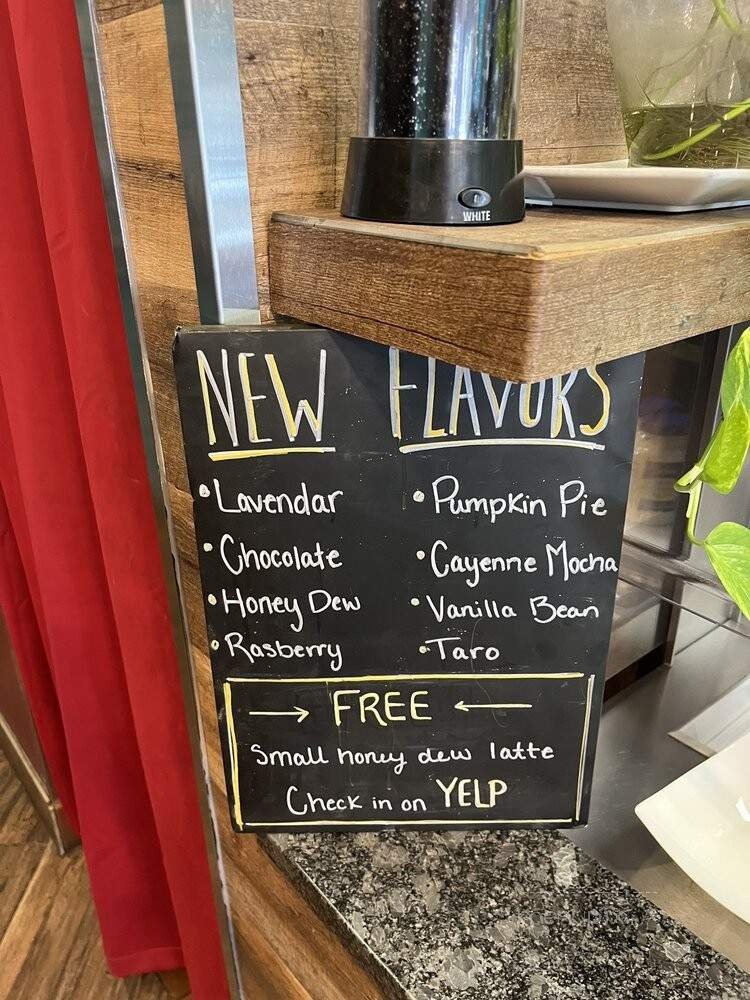 WHITE
NEW FLAVORS
• Lavendar
• Chocolate
• Honey Dew
• Rasberry
• Pumpkin Pie
• Cayenne Mocha
• Vanilla Bean
• Taro
→ FREE ←
Small honey dew latte
Check in on YELP